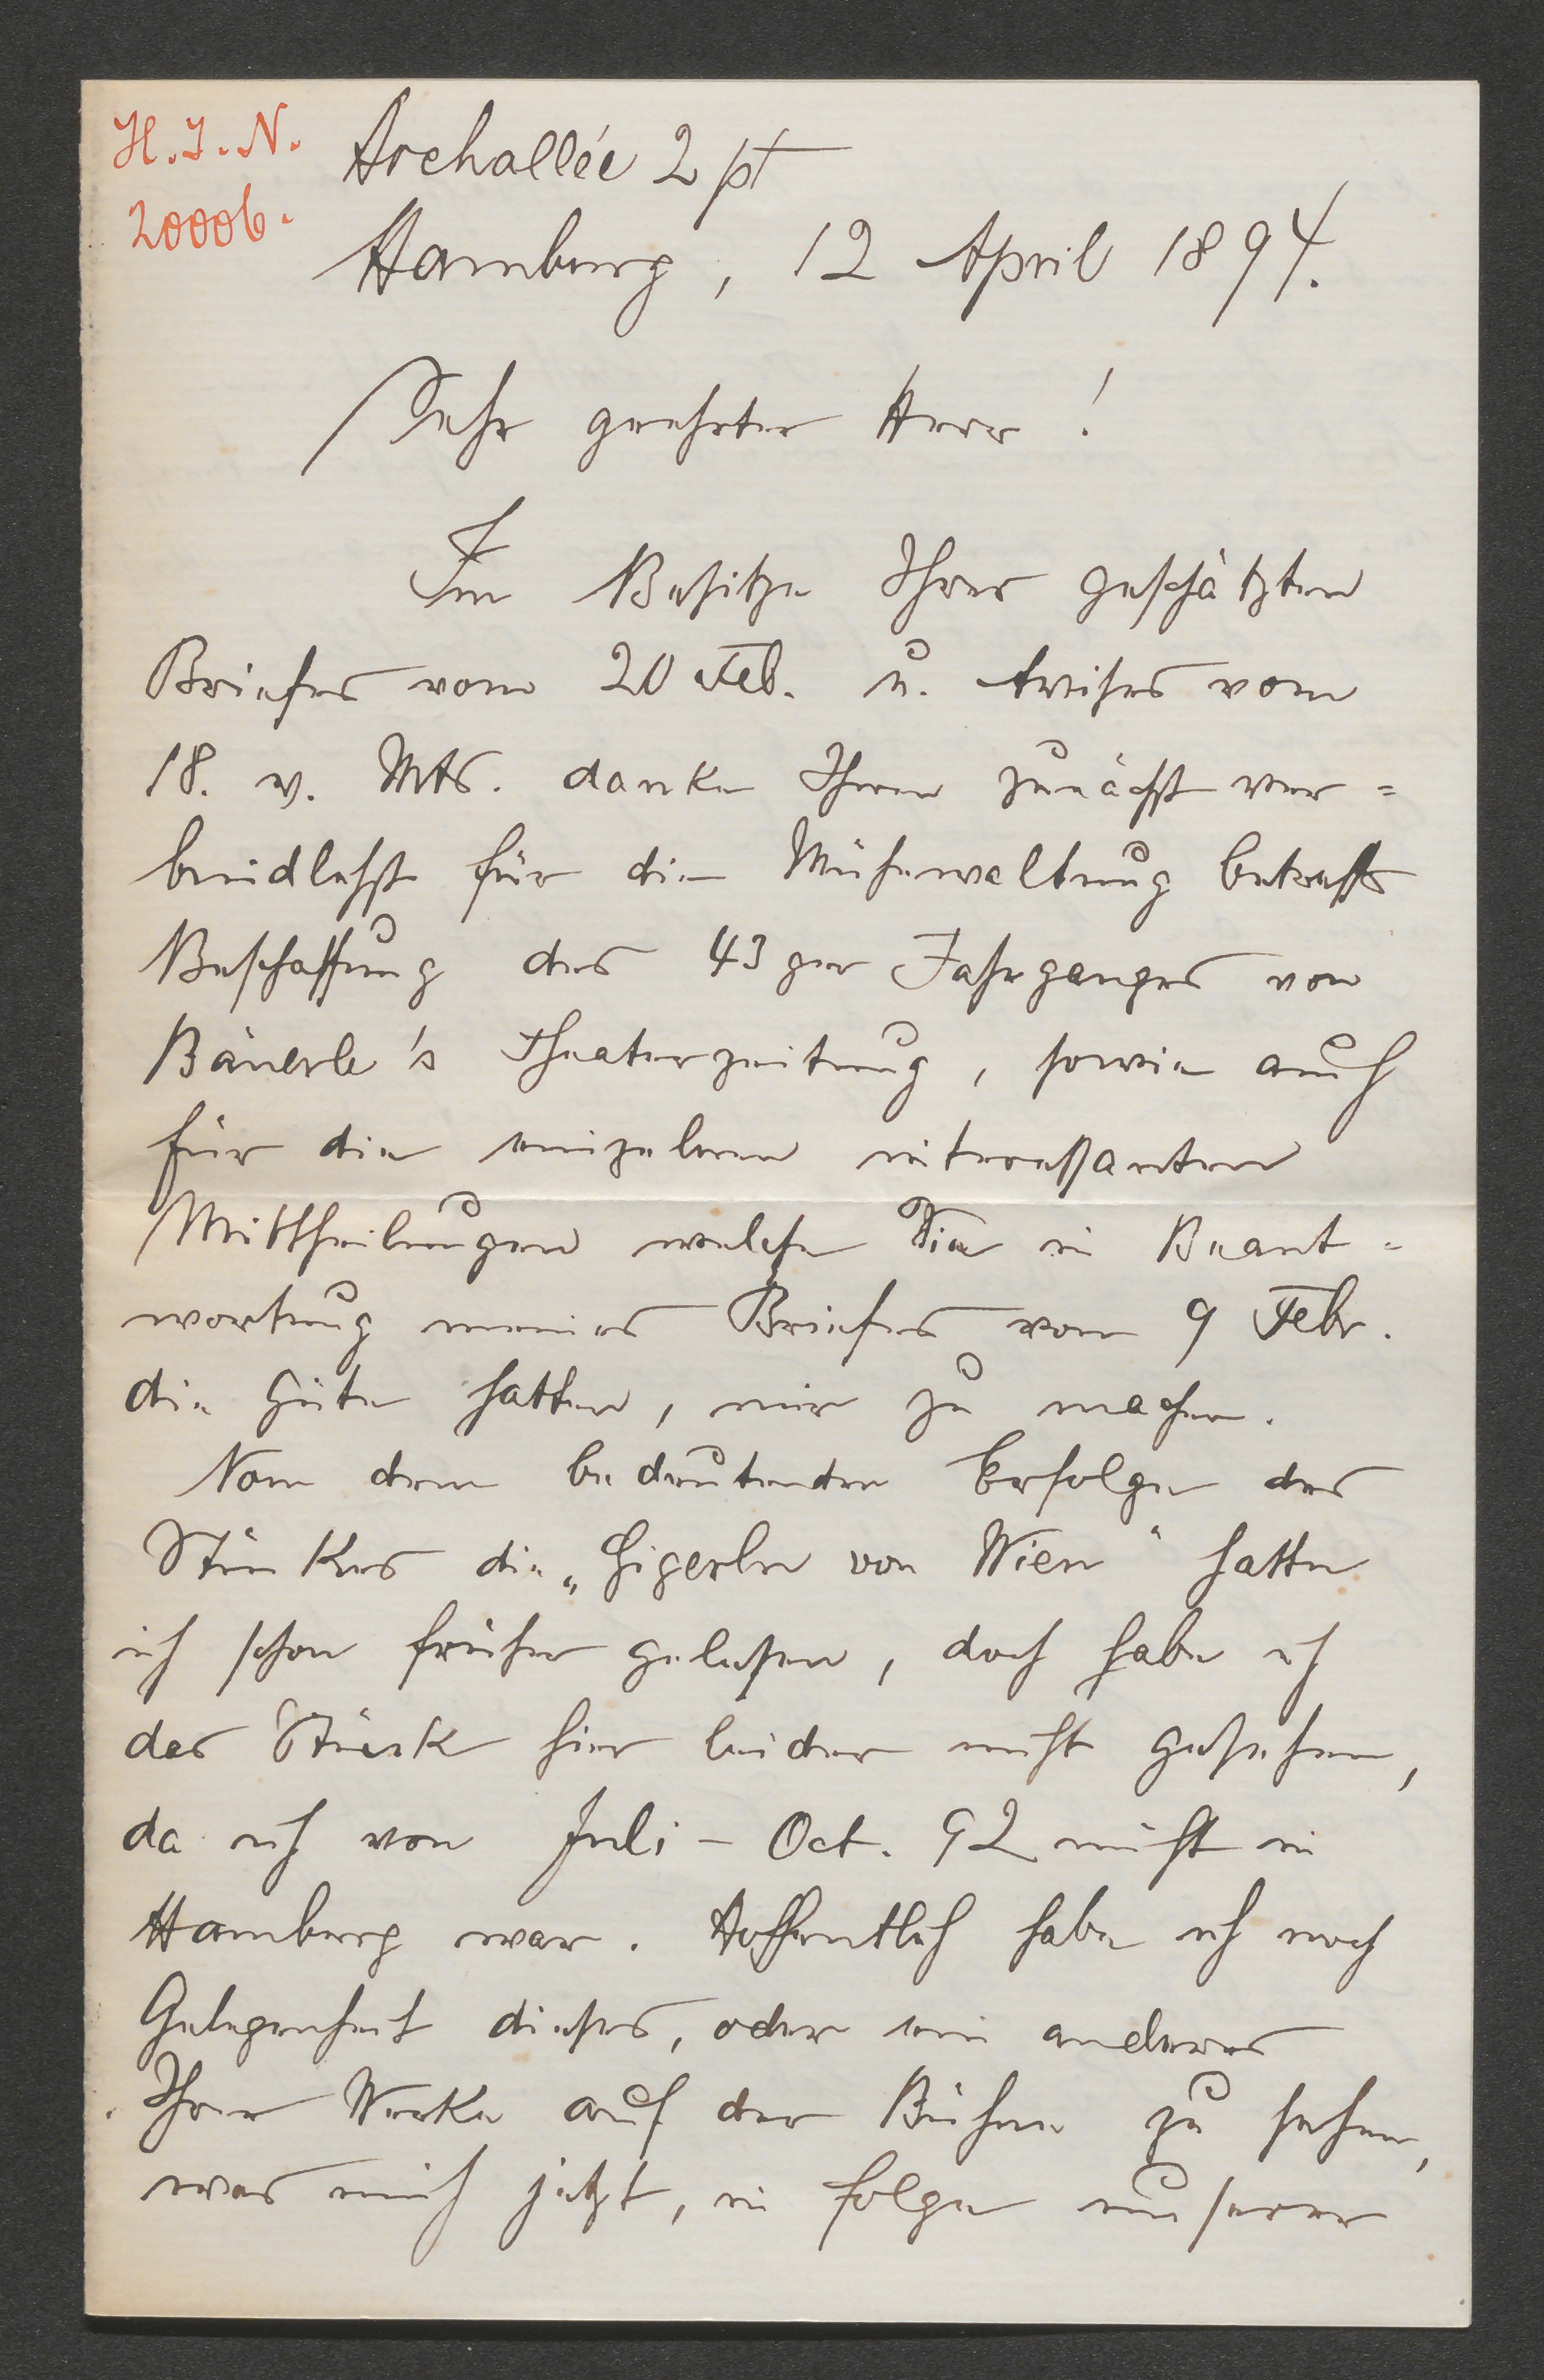 H.I.N.
20006.
Archallée 2 pt
Hamburg, 12 April 1894.
Sehr geehrter Herr!
Im Besitze Ihres geschätzten
Briefes vom 20 Feb. u. Avises vom
18. v. Mts. danke Ihnen zunächst ver=
bindlichst für die Mühewaltung betreffs
Beschaffung des 43ger Jahrganges von
Bäuerle's Theaterzeitung, sowie auch
für die einzelnen interessanten
Mittheilungen welche Sie in Beant=
wortung meines Briefes vom 9 Febr.
die Güte hatten, mir zu machen.
Von dem bedeutenden Erfolge des
Stückes die „Gigerln von Wien" hatte
ich schon früher gelesen, doch habe ich
das Stück hier leider nicht gesehen,
da ich von Juli - Oct. 92 nicht in
Hamburg war. Hoffentlich habe ich noch
Gelegenheit dieses, oder ein anderes
Ihrer Werke auf der Bühne zu sehen,
was mich jetzt, in Folge unserer